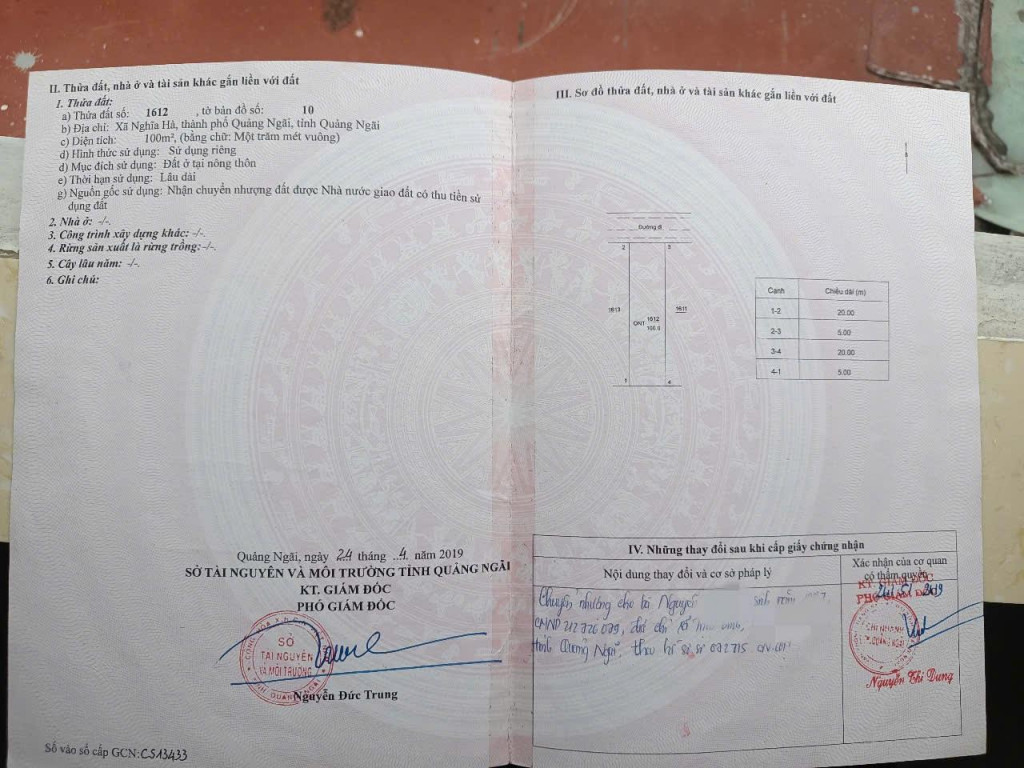 II. Thửa đất, nhà ở và tài sản khác gắn liền với đất
1. Thửa đất:
a) Thửa đất số: 1612 , tờ bản đồ số: 10
b) Địa chỉ: Xã Nghĩa Hà, thành phố Quảng Ngãi, tỉnh Quảng Ngãi
c) Diện tích: 100m², (bằng chữ: Một trăm mét vuông)
d) Hình thức sử dụng: Sử dụng riêng
đ) Mục đích sử dụng: Đất ở tại nông thôn
e) Thời hạn sử dụng: Lâu dài
g) Nguồn gốc sử dụng: Nhận chuyển nhượng đất được Nhà nước giao đất có thu tiền sử
dụng đất
2. Nhà ở: -/-.
3. Công trình xây dựng khác: -/-.
4. Rừng sản xuất là rừng trồng:-/-.
5. Cây lâu năm: -/-.
6. Ghi chú:
Quảng Ngãi, ngày 24 tháng ..4. năm 2019
SỞ TÀI NGUYÊN VÀ MÔI TRƯỜNG TỈNH QUẢNG NGÃI
KT. GIÁM ĐỐC
PHÓ GIÁM ĐỐC
SỞ
TÀI NGUYÊN
VÀ MÔI TRƯỜNG
TỈNH QUẢNG NGÃI
Nguyễn Đức Trung
Số vào sổ cấp GCN:CS13433
III. Sơ đồ thửa đất, nhà ở và tài sản khác gắn liền với đất
Đường đi
2 3
1613 1611
ONT 1612
100.0
1 4
Cạnh Chiều dài (m)
1-2 20.00
2-3 5.00
3-4 20.00
4-1 5.00
IV. Những thay đổi sau khi cấp giấy chứng nhận
Nội dung thay đổi và cơ sở pháp lý
Xác nhận của cơ quan
có thẩm quyền
KT. GIÁM ĐỐC
PHÓ GIÁM ĐỐC
Chuyển nhượng cho bà Nguyễn sinh năm
CMND 212726079, địa chỉ
tỉnh Quảng Ngãi, theo hồ sơ số 092715
CHI NHÁNH
QUẢNG NGÃI
Nguyễn Thị Dung